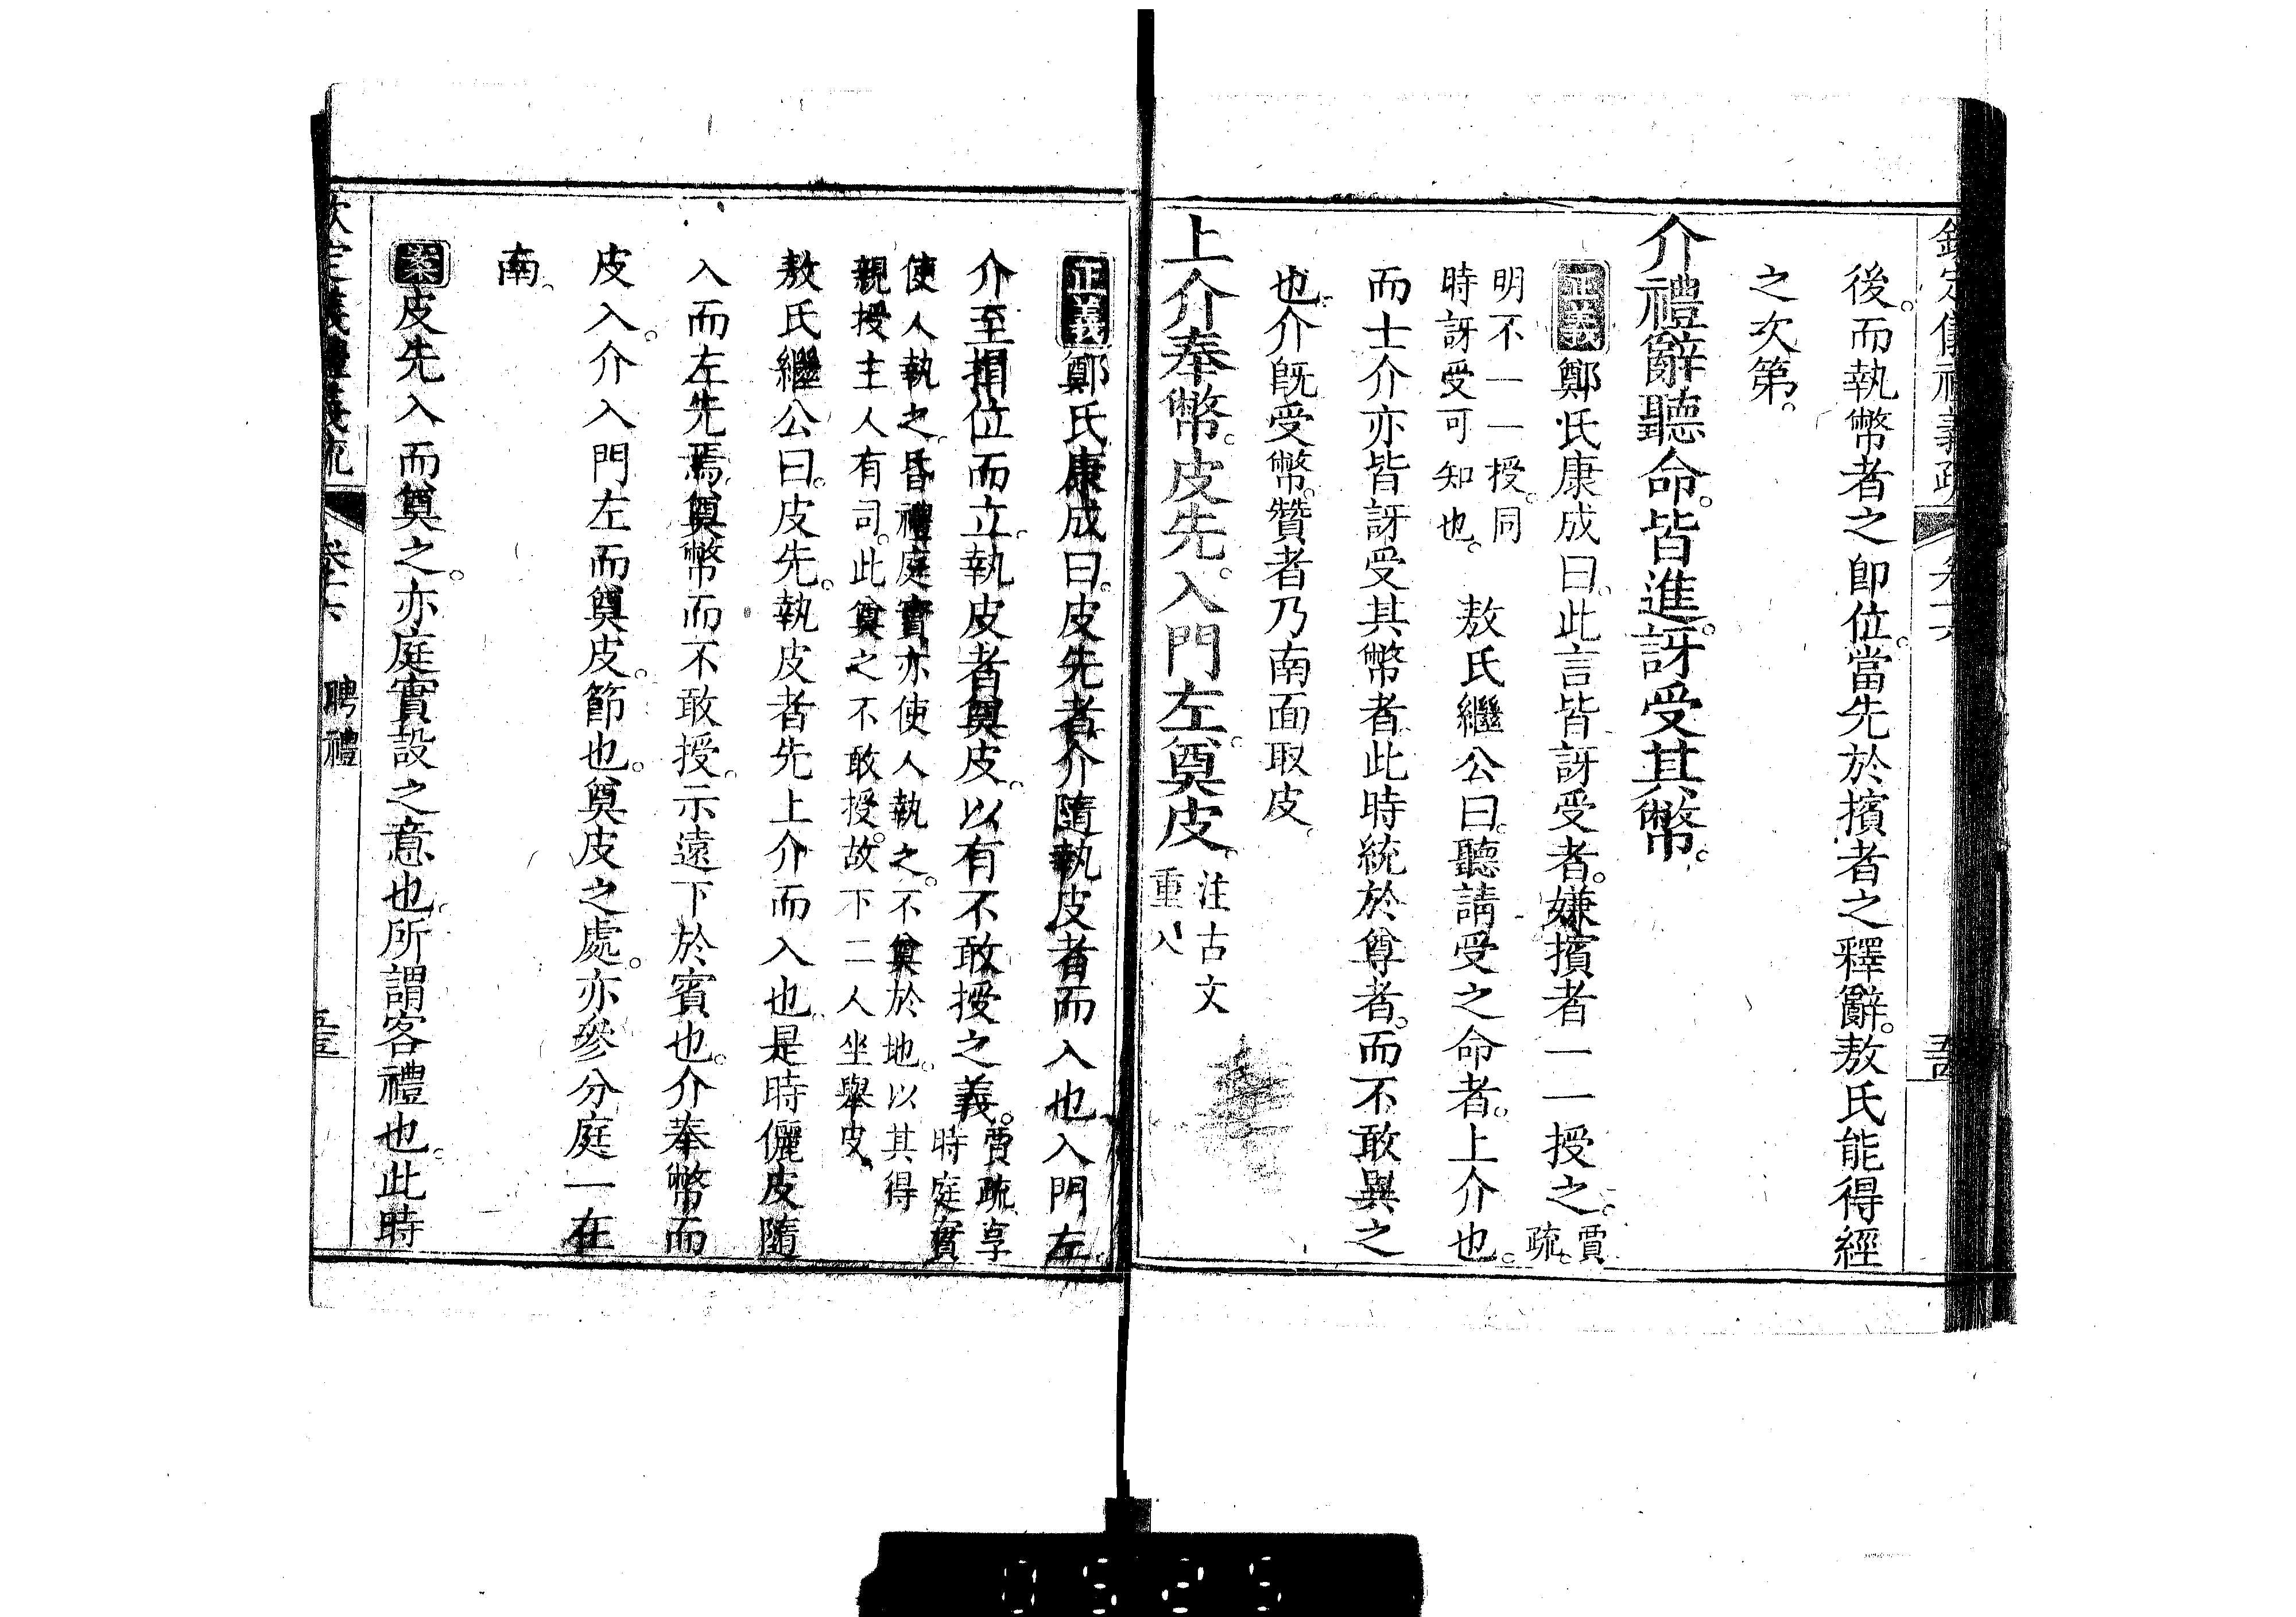 後。而執幣者之即位。當先於擯者之釋辭。敖氏能得經
之次第。
介禮辭聽命。皆進。訝受其幣。
正義鄭氏康成曰。此言皆訝受者。嫌擯者一一授之。賈疏。
明不一一授。同
時訝受可知也。
敖氏繼公曰。聽請受之命者。上介也。
而士介亦皆訝受其幣者。此時統於尊者。而不敢異之
也。介既受幣。贊者乃南面取皮。
上介奉幣。皮先。入門左。奠皮。
注古文
重入
正義鄭氏康成曰。皮先者。介隨執皮者而入也。入門左。
介至揖位而立。執皮者奠皮。以有不敢授之義。
賈疏。享
時庭實
使人執之。昏禮庭實。亦使人執之。不奠於地。以其得
親授主人有司。此奠之不敢授。故下二人坐舉皮。
敖氏繼公曰。皮先。執皮者先上介而入也。是時儷皮隨
入而左先焉。奠幣而不敢授。示遠下於賓也。介奉幣而
皮入。介入門左而奠皮。節也。奠皮之處。亦參分庭一在
南。
案皮先入而奠之。亦庭實設之意也。所謂客禮也。此時
聘禮